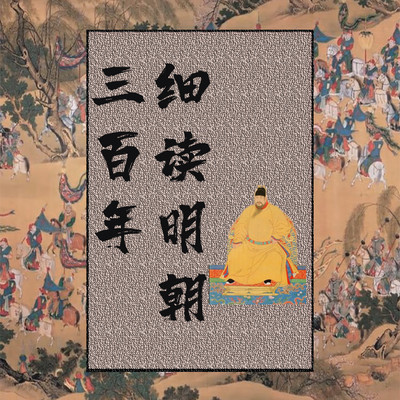 细读明朝
三百年